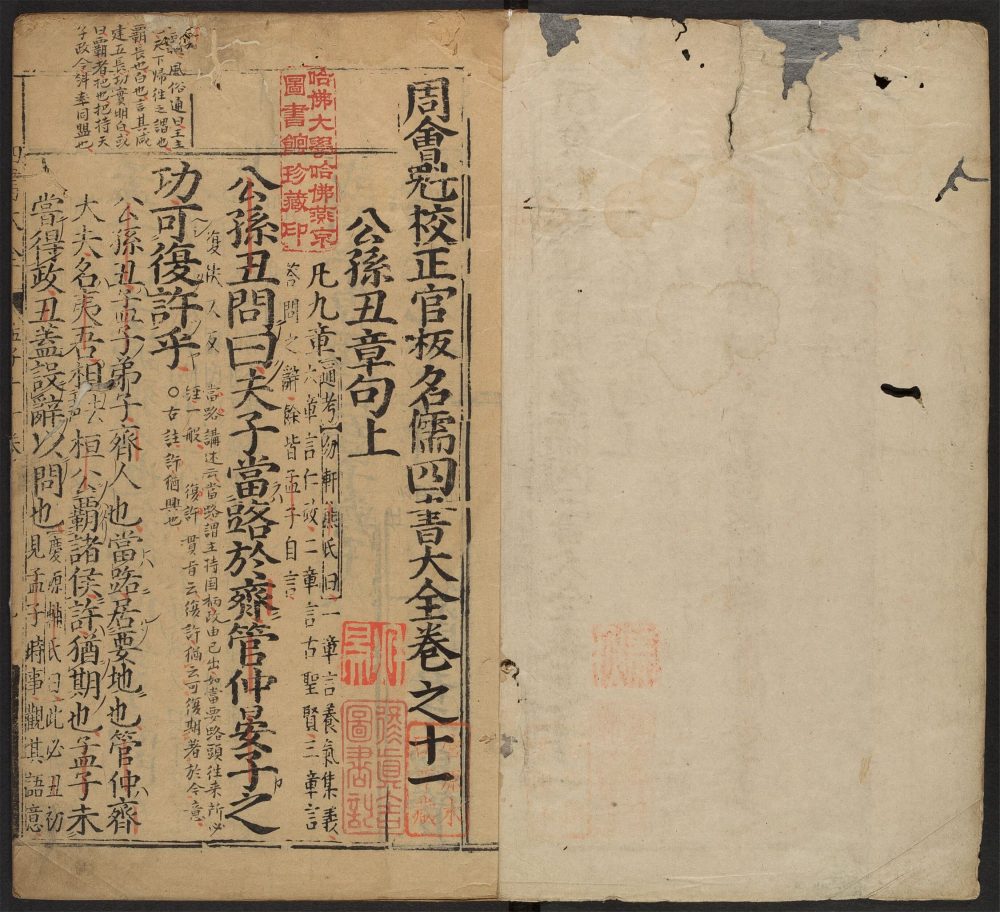 周會魁校正官板名儒四書大全卷之十一
公孫丑章句上
凡九章【通考】勿軒熊氏曰一章言養氣集義
六章言仁政二章言古聖賢三章言
答問之辭餘皆孟子自言
公孫丑問曰夫子當路於齊管仲晏子之
當路講述云當路謂主持国柄政由已出如當要路頭往来所必
一般 復許 貫旨云復許猶云可復期著於今意
○古註許猶興也
功可復許乎
公孫丑孟子弟子齊人也當路居要地也管仲齊
大夫名夷吾相桓公覇諸侯許猶期也孟子未
嘗得政丑蓋設辭以問也
慶源輔氏曰此必丑初
見孟子時事觀其語意
風俗通曰王主
天下歸往之謂也
覇長也白也言其咸
建五長功實明白或
曰覇者把也把持天
子政令糾率同盟也
哈佛大學哈佛燕京
圖書館珍藏印